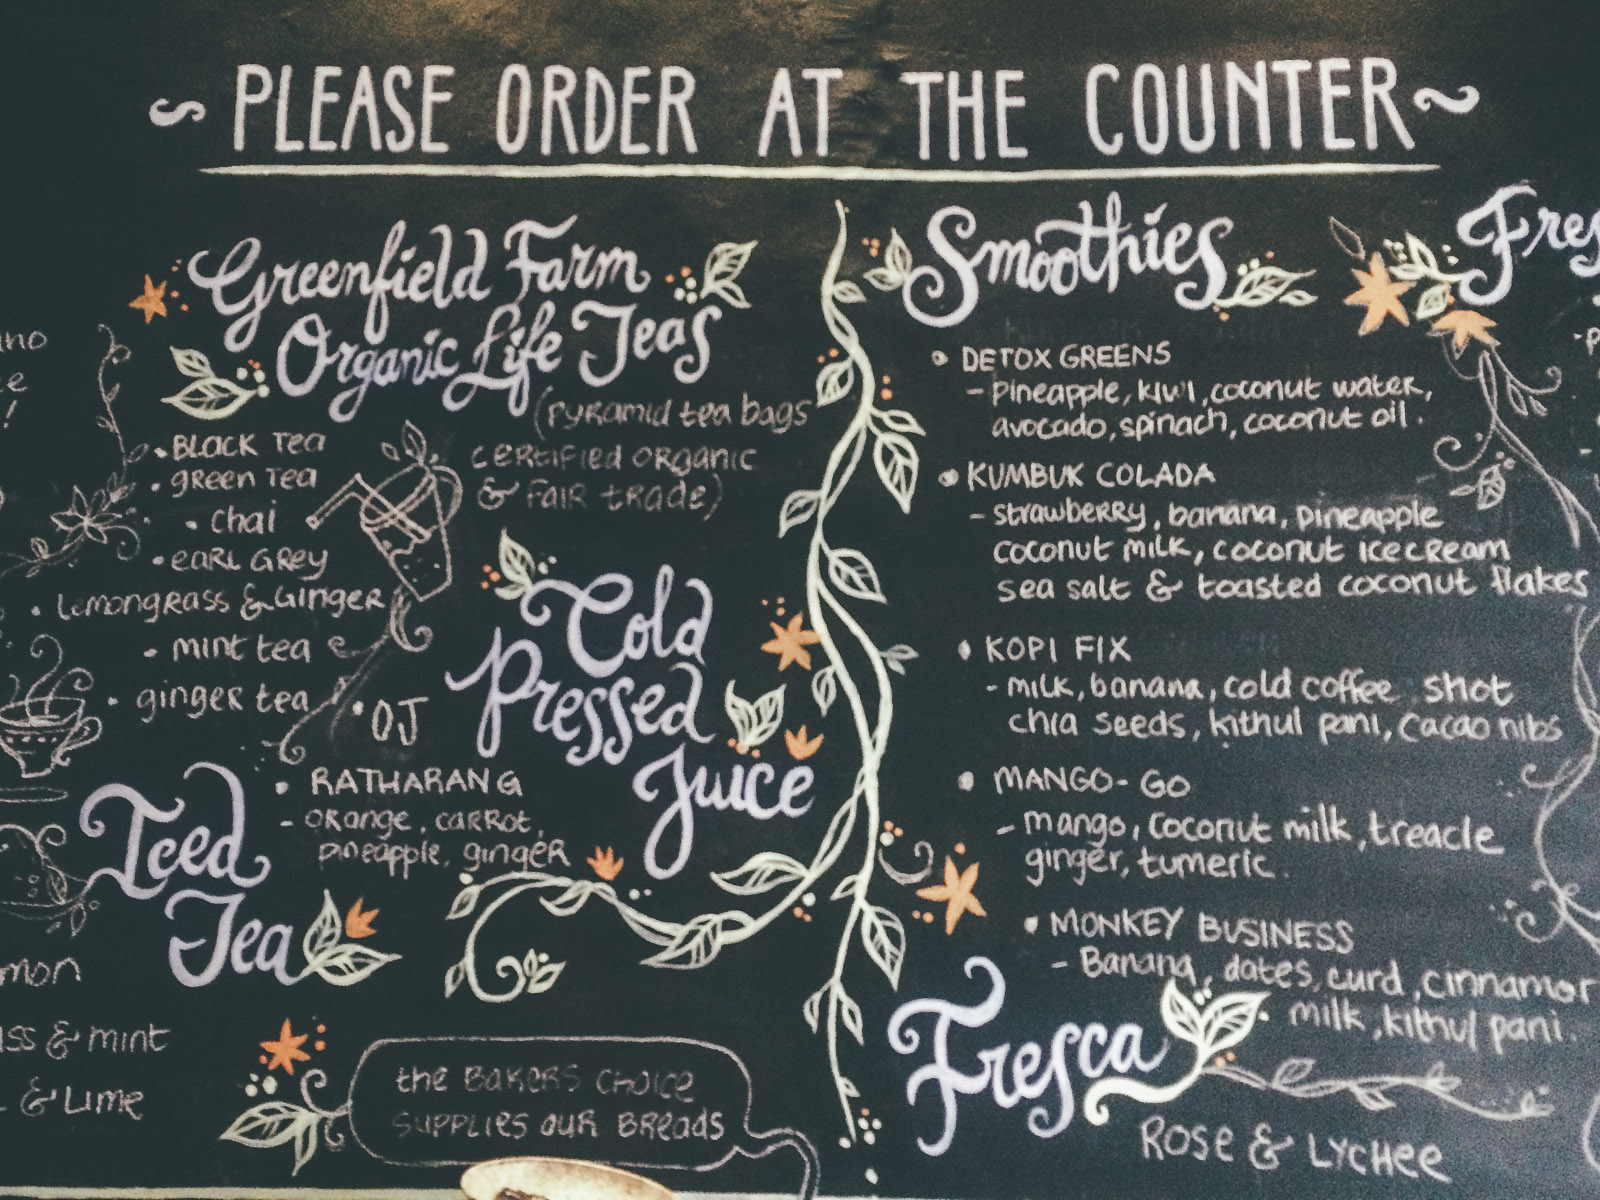 PLEASE ORDER AT THE COUNTER
Greenfield Farm
Organic Life Teas
(pyramid tea bags
certified organic
& fair trade)
• BLACK Tea
• green Tea
• chai
• earl grey
• Lemongrass & Ginger
• mint tea
• ginger tea
Cold
Pressed
Juice
• OJ
• RATHARANG
- orange, carrot,
pineapple, ginger
Iced
Tea
mon
ss & mint
& Lime
the Bakers Choice
supplies our Breads
Smoothies
• DETOX GREENS
- Pineapple, kiwi, coconut water,
avocado, spinach, coconut oil.
• KUMBUK COLADA
- strawberry, banana, pineapple
coconut milk, coconut icecream
sea salt & toasted coconut flakes
• KOPI FIX
- milk, banana, cold coffee shot
chia seeds, kithul pani, cacao nibs
• MANGO-GO
- mango, coconut milk, treacle
ginger, tumeric.
• MONKEY BUSINESS
- Banana, dates, curd, cinnamon
milk, kithul pani.
Fresca
Rose & Lychee
Fres